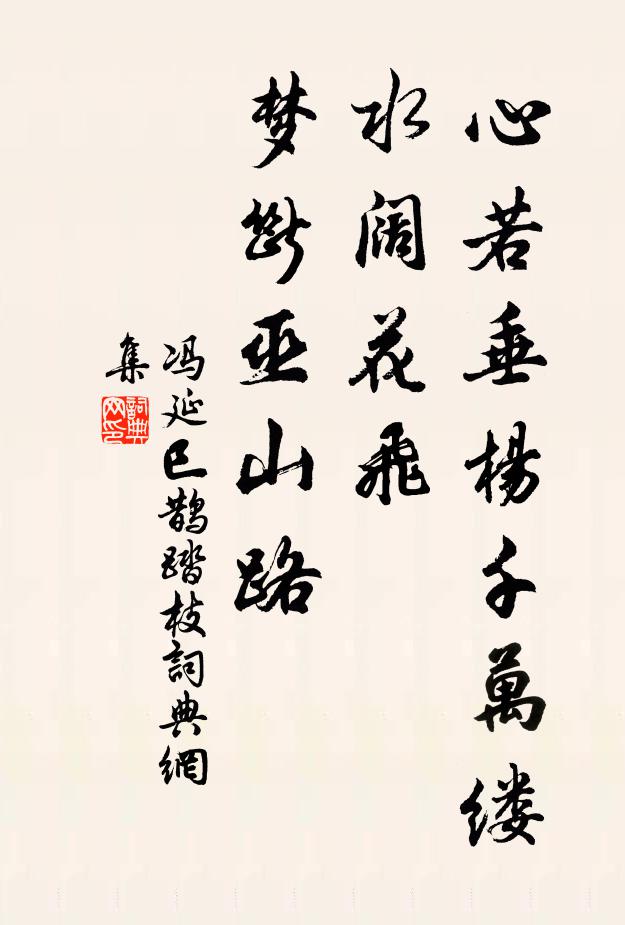 心若垂楊千萬缕
水阔花飛
梦斷巫山路
冯延巳鹊踏枝詞典網
集
詞典
网印